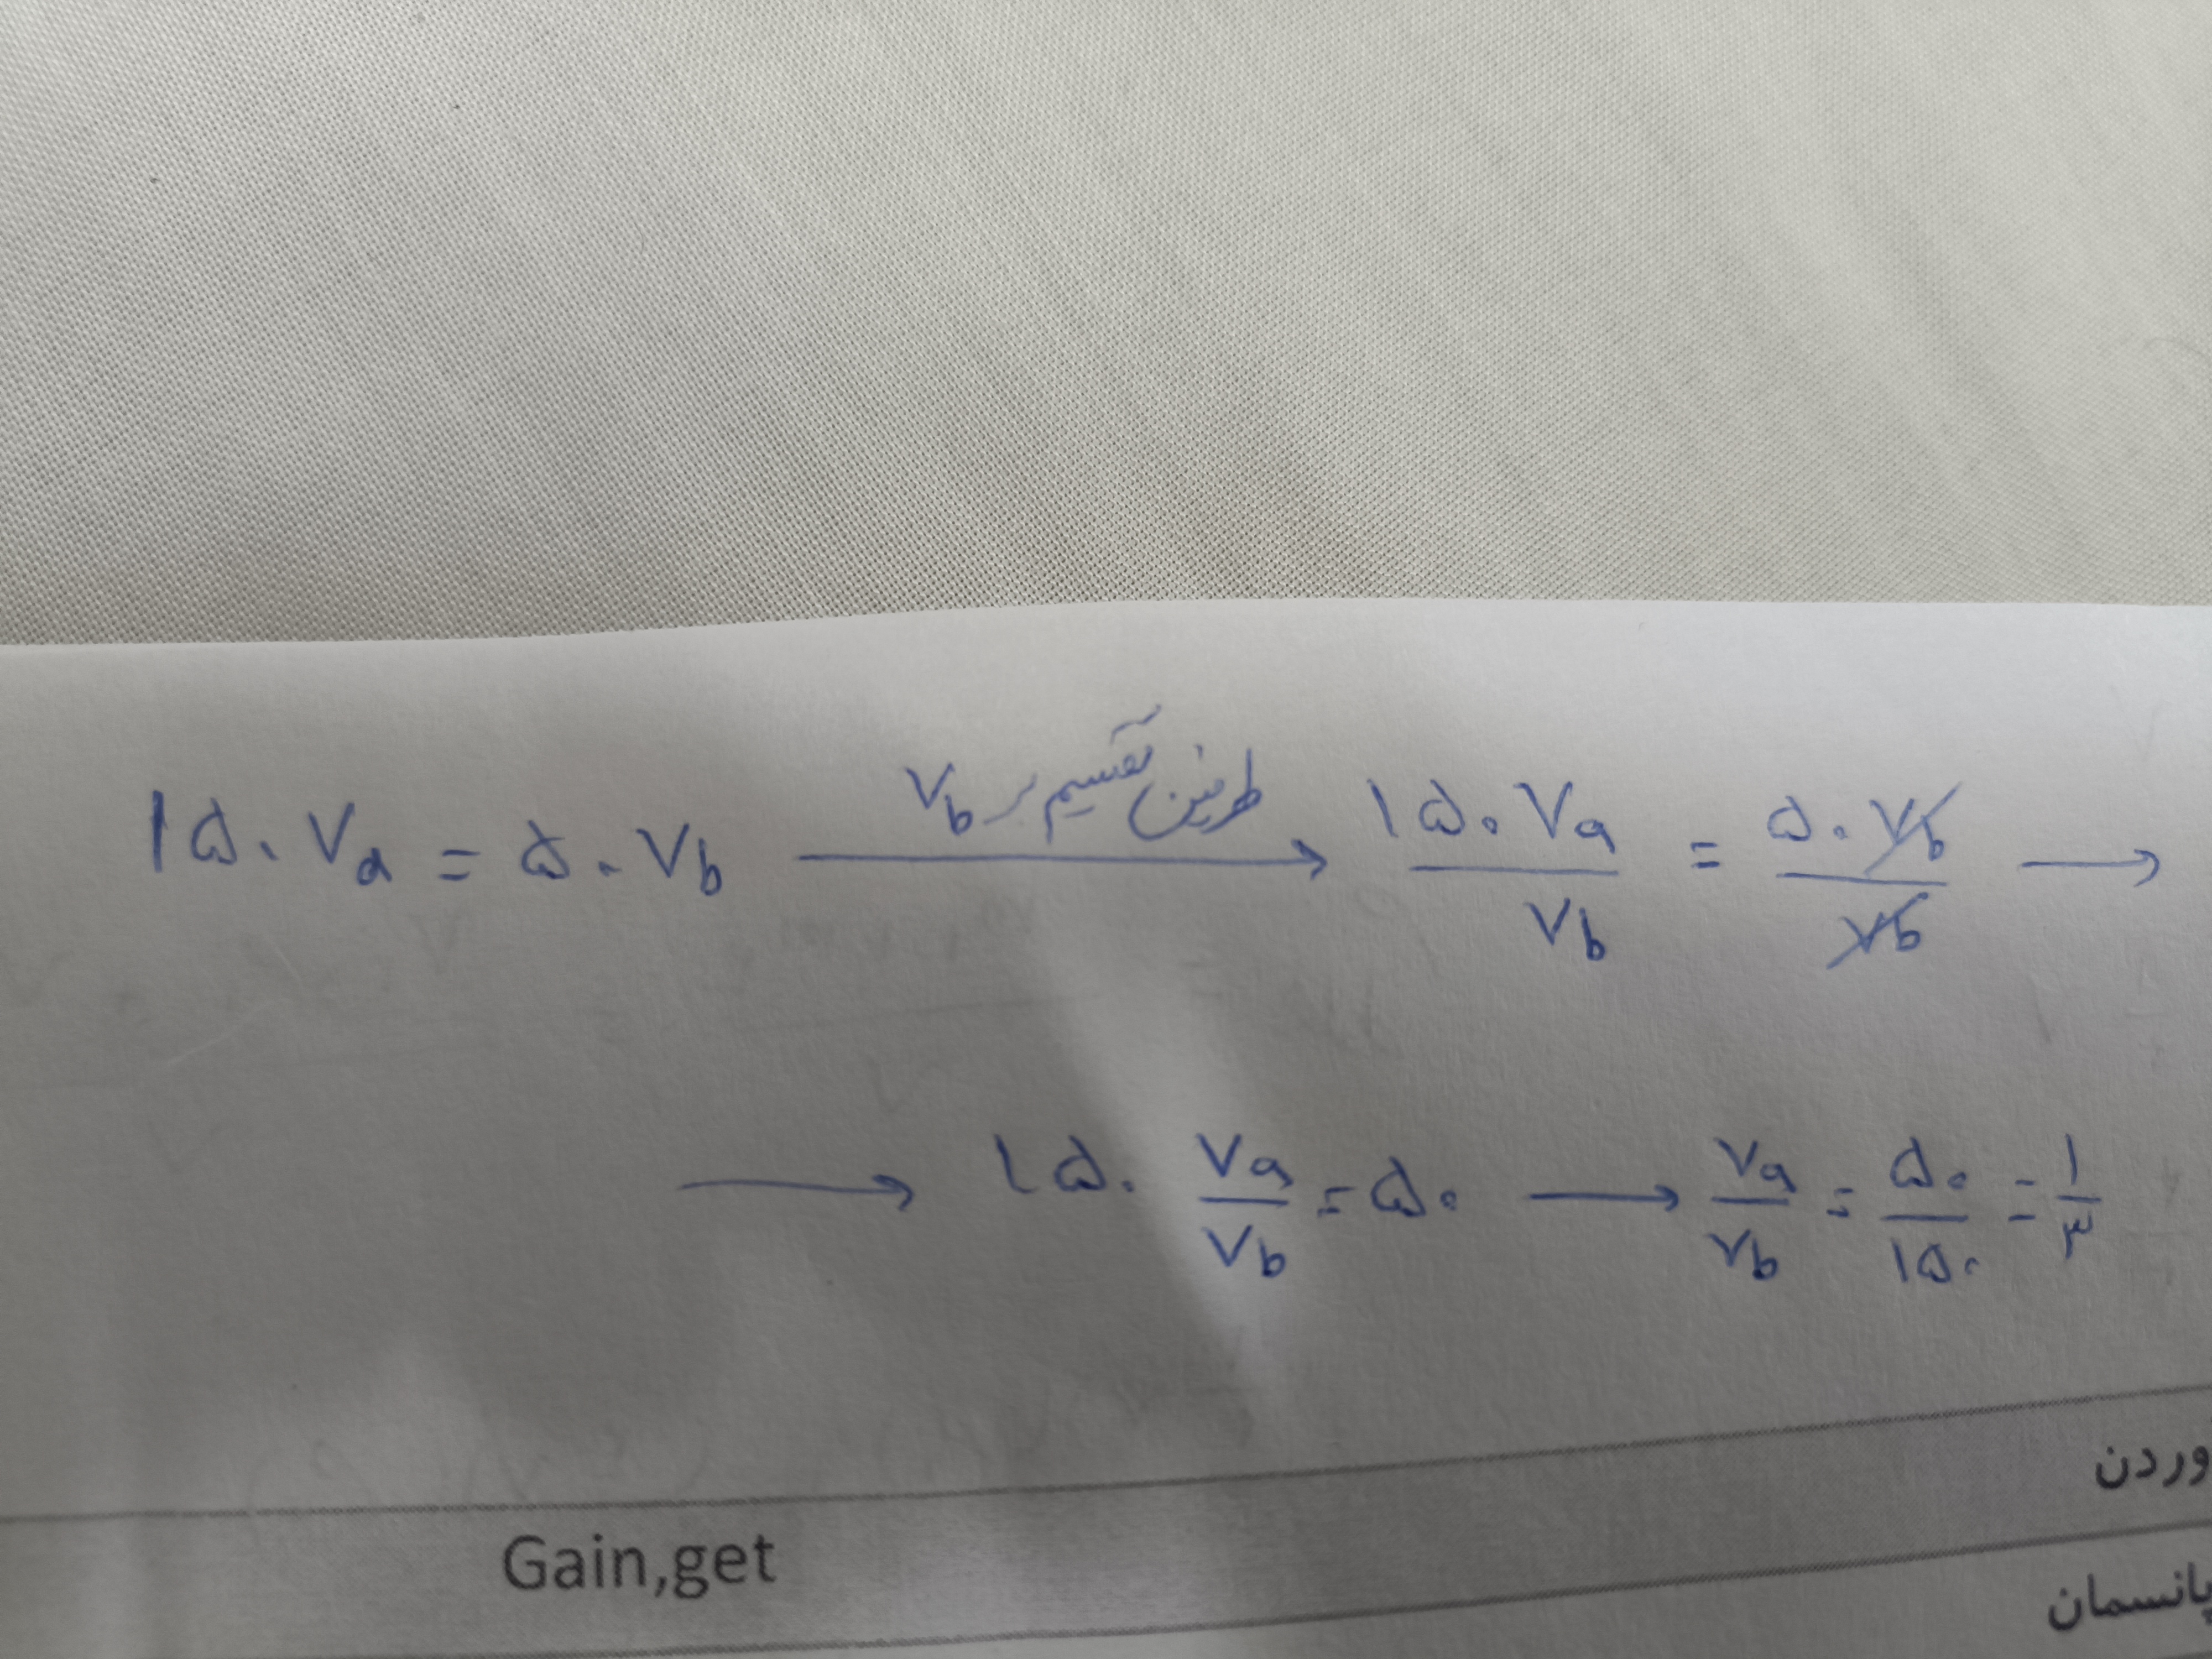 ۱۵۰ Va = ۵۰ Vb طرفین تقسیم بر Vb → ۱۵۰ Va / Vb = ۵۰ Vb / Vb →
→ ۱۵۰ Va / Vb = ۵۰ → Va / Vb = ۵۰ / ۱۵۰ = ۱ / ۳
وردن
Gain,get
پانسمان